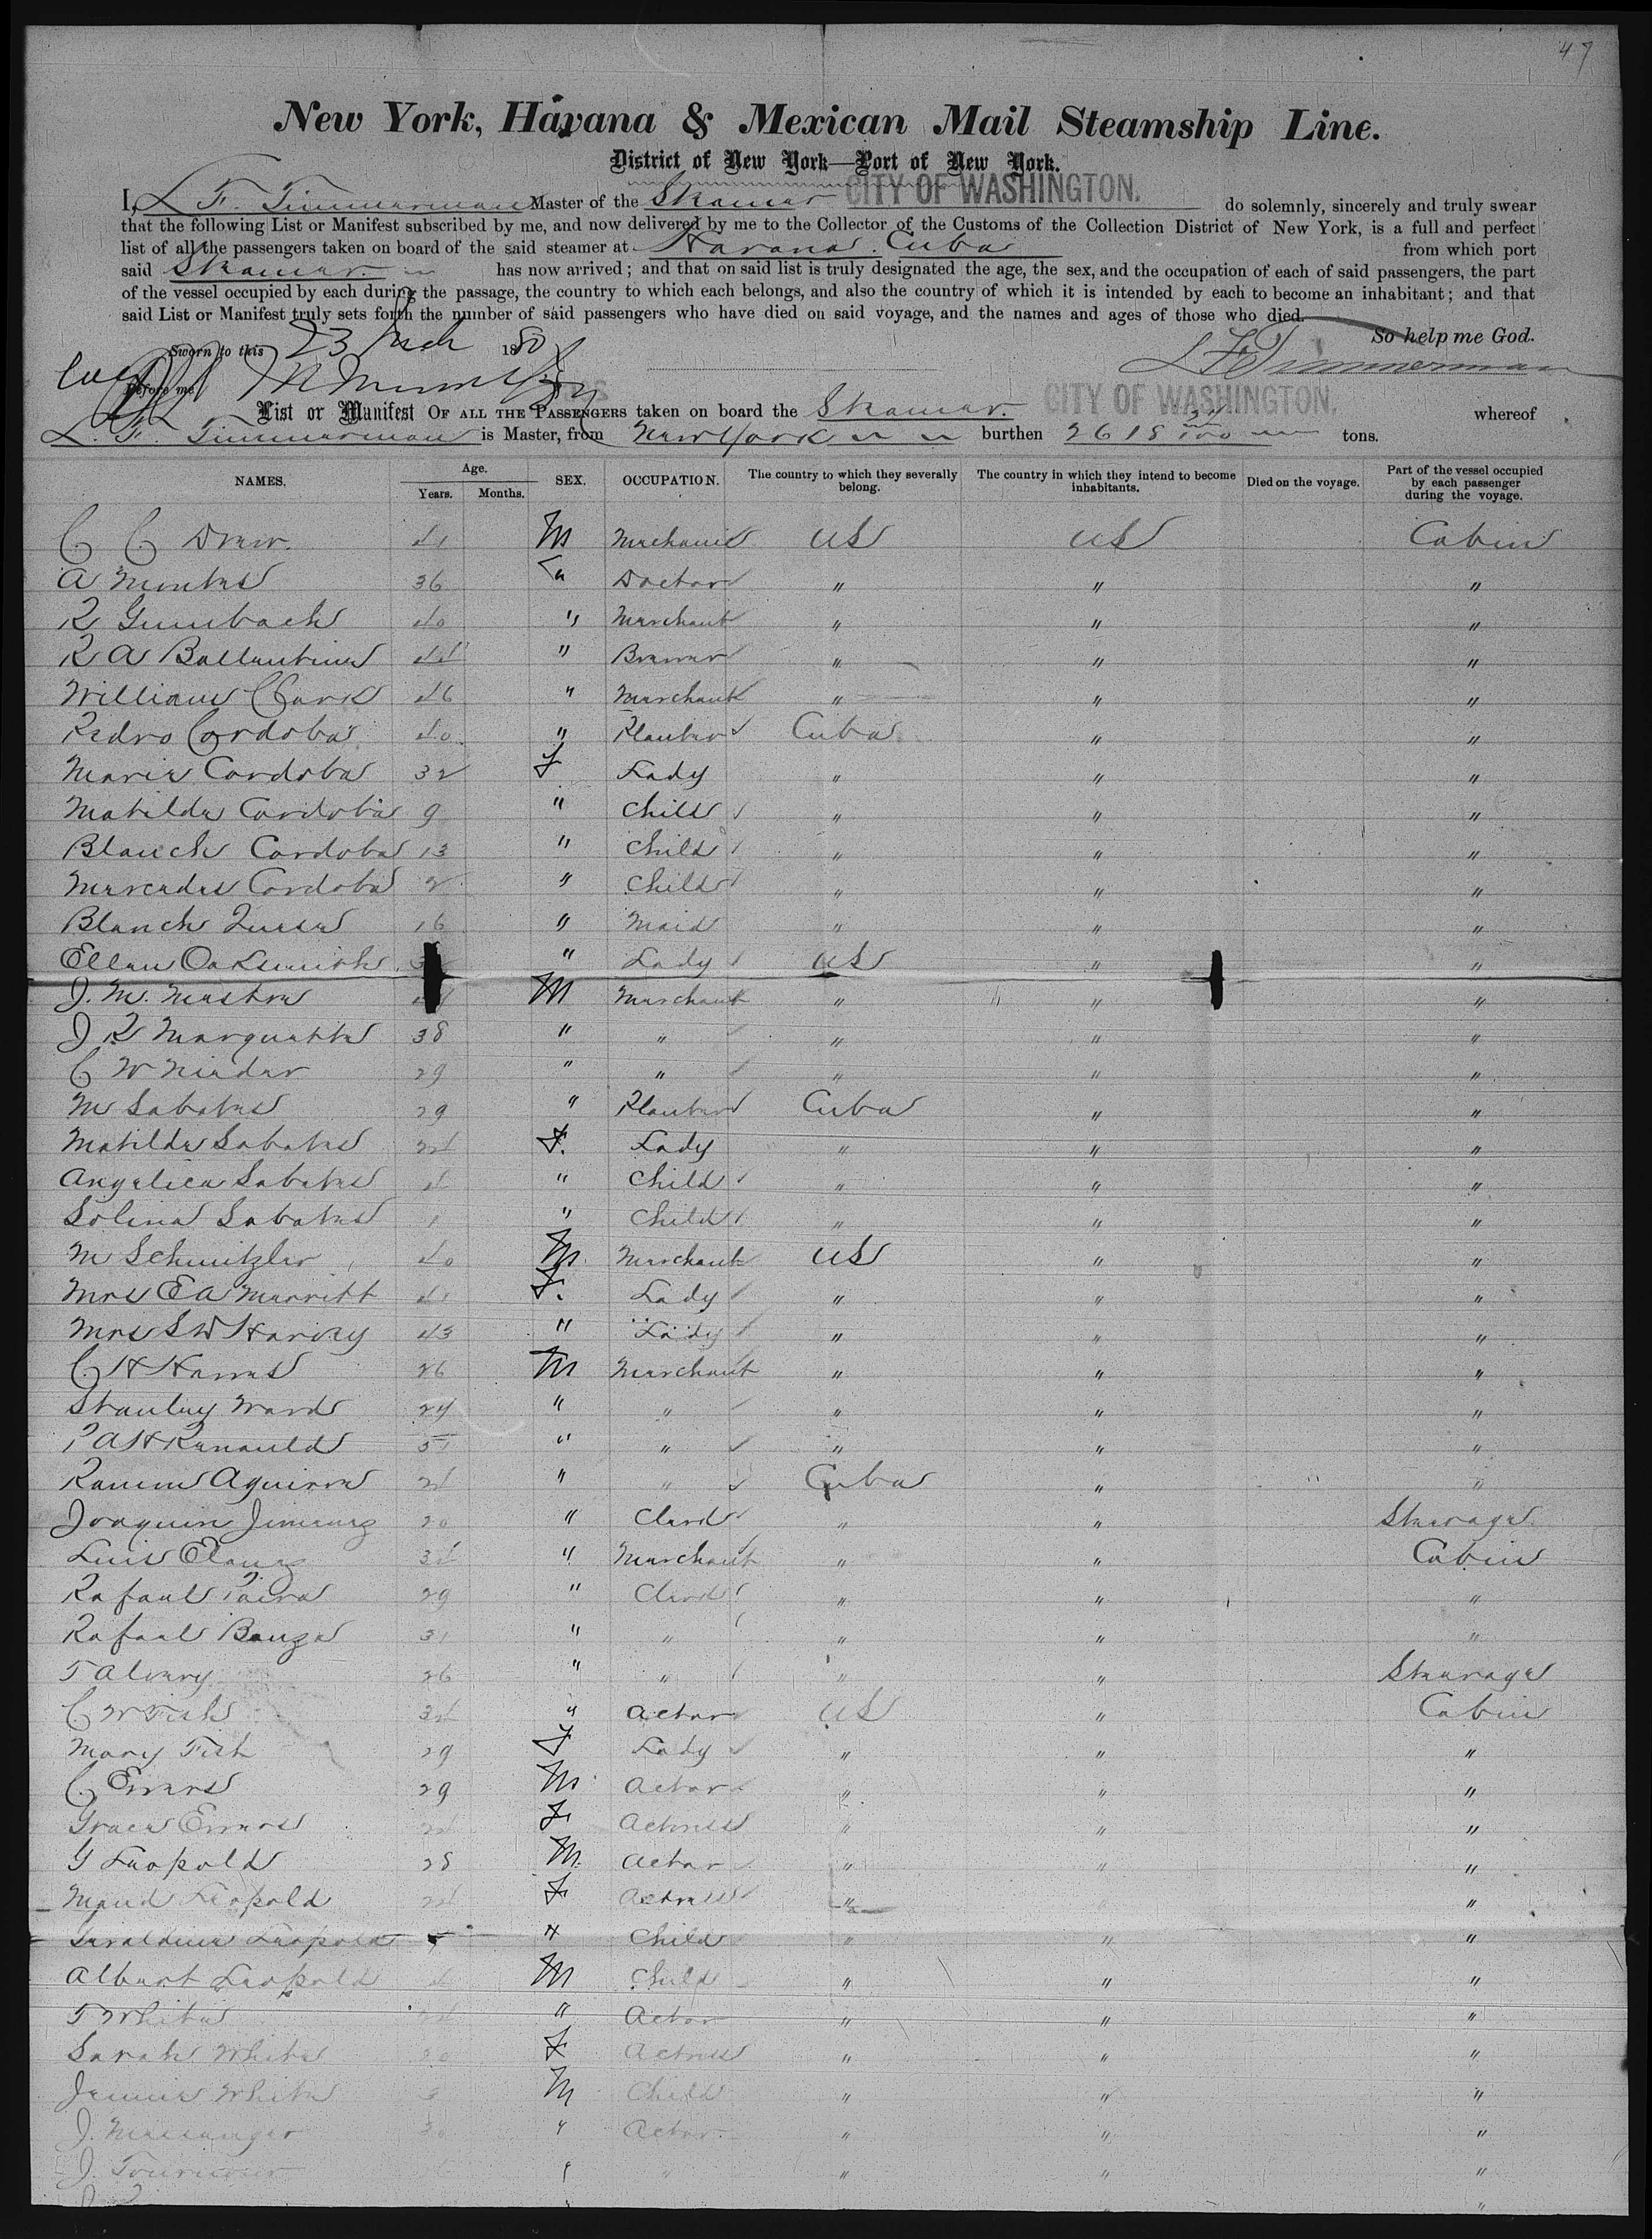 47
New York, Havana & Mexican Mail Steamship Line.
District of New York—Port of New York.
I, L F. Timmerman Master of the Steamer CITY OF WASHINGTON. do solemnly, sincerely and truly swear
that the following List or Manifest subscribed by me, and now delivered by me to the Collector of the Customs of the Collection District of New York, is a full and perfect
list of all the passengers taken on board of the said steamer at Havana. Cuba from which port
said Steamer has now arrived; and that on said list is truly designated the age, the sex, and the occupation of each of said passengers, the part
of the vessel occupied by each during the passage, the country to which each belongs, and also the country of which it is intended by each to become an inhabitant; and that
said List or Manifest truly sets forth the number of said passengers who have died on said voyage, and the names and ages of those who died.
So help me God.
Sworn to this 23 Mch 1880
L F Timmerman
Before me
List or Manifest OF ALL THE PASSENGERS taken on board the Steamer. CITY OF WASHINGTON. whereof
L. F. Timmerman is Master, from New York burthen 2618 34/100 tons.
NAMES. Age. Years. Months. SEX. OCCUPATION. The country to which they severally belong. The country in which they intend to become inhabitants. Died on the voyage. Part of the vessel occupied by each passenger during the voyage.
C. C. Drew. 41 M US US Cabin
A Montes 36 " Doctor " " "
R Gumbach 40 " Merchant " " "
R A Ballantine 44 " Brewer " " "
William Clark 46 " Merchant " " "
Pedro Cordoba 40 " Planter Cuba " "
Marie Cordoba 32 F Lady " " "
Matilde Cordoba 9 " Child " " "
Blanch Cordoba 13 " Child " " "
Mercedes Cordoba 2 " Child " " "
Blanch 16 " Maid " " "
Ellen Oaksmith " Lady US " "
J. M. M Merchant " " "
J R Marquette 38 " " " " "
C W 29 " " " " "
M Sabates 29 " Planter Cuba " "
Matilde Sabates 24 F. Lady " " "
Angelica Sabates 4 " Child " " "
Solina Sabates 1 " Child " " "
M Schmitzler 40 M. Merchant US " "
Mrs E A Merritt 41 F. Lady " " "
Mrs S W Harvey 43 " Lady " " "
C H 26 M Merchant " " "
Stanley Ward 24 " " " " "
P A H Renauld 51 " " " " "
Ramon Aguirre 24 " " Cuba " "
Joaquin Jimenez 20 " Clerk " " Steerage
Luis 34 " Merchant " " Cabin
Rafael 29 " Clerk " " "
Rafael Bauza 31 " " " " "
T Alvary 26 " " " " Steerage
C W Fish 34 " Actor US " Cabin
Mary Fish 29 F Lady " " "
C. Emars 29 M Actor " " "
Grace Emars 24 F Actress " " "
G Leopold 28 M. Actor " " "
Maud Leopold 24 F Actress " " "
Geraldine Leopold " Child " " "
Albert Leopold 4 M Child " " "
T White 24 " Actor " " "
Sarah White 20 F Actress " " "
Jennie White 3 M Child " " "
J. Messenger 30 " Actor " " "
J. " " " " "